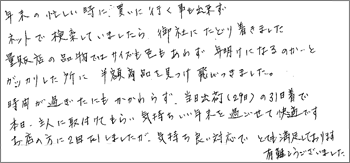 年末の忙しい時に、買いに行く事も出来ず
ネットで検索していましたら 御社にたどり着きました
量販店の品物ではサイズも色もあわず 年明けになるのか…と
ガッカリした所に 半額商品を見つけ飛びつきました。
時間が過ぎたにもかかわらず、当日出荷(29日)の31日着で
本日、主人に取付けてもらい 気持ちいい年末を過ごせて快適です
お店の方に2回TELしましたが、気持ち良い対応で とても満足しております
有難うございました